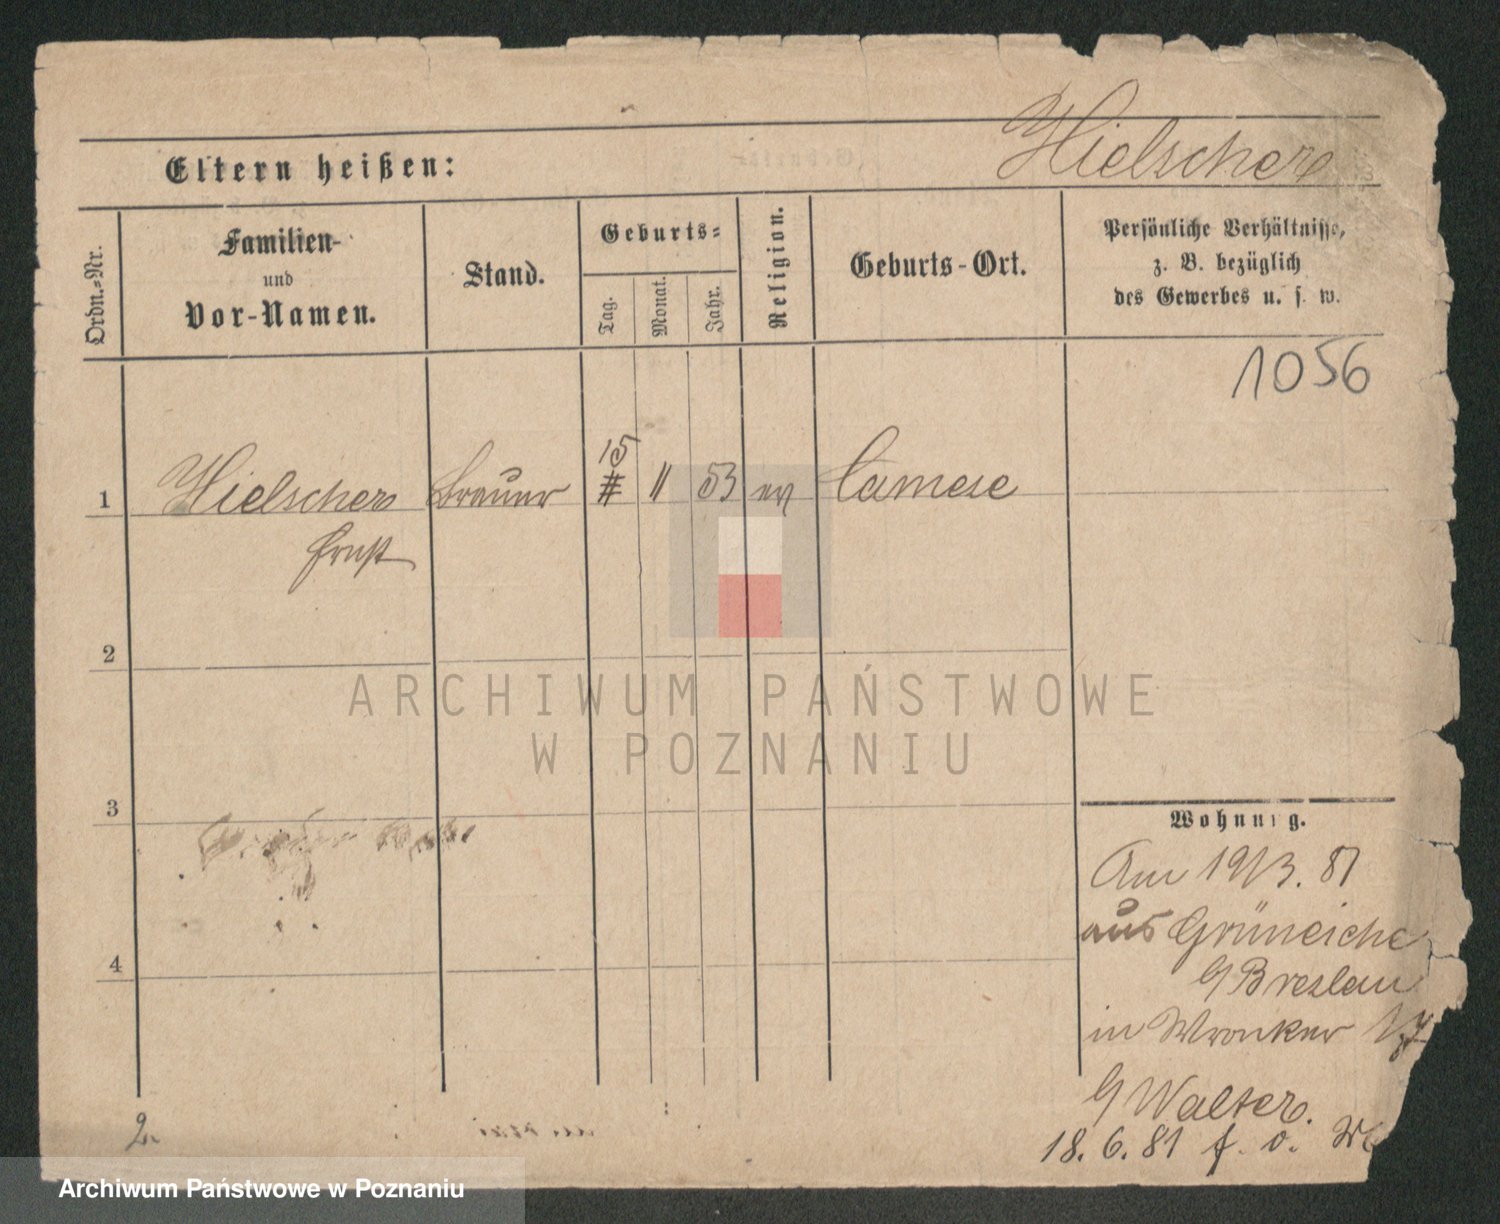 Hielscher
Eltern heißen:
Ordn.-Nr.
Familien-
und
Vor-Namen.
Stand.
Geburts-
Tag.
Monat.
Jahr.
Religion.
Geburts-Ort.
Persönliche Verhältnisse,
z. B. bezüglich
des Gewerbes u. s. w.
1056
15
1 Hielscher Brauer 11 53 ev Camese
Ernst
2
ARCHIWUM PAŃSTWOWE
W POZNANIU
3
Wohnung.
Am 19/3. 81
aus Grüneiche
Breslau
4
in Wronker
Walter.
18. 6. 81 f. o.
2.
Archiwum Państwowe w Poznaniu